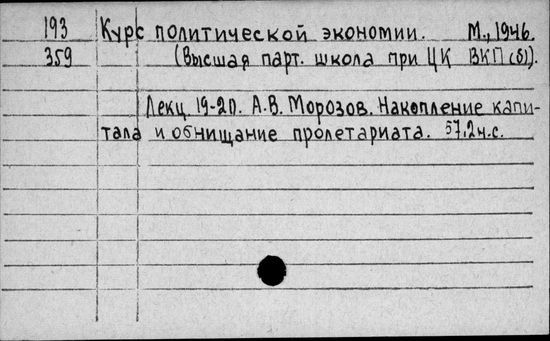 193 Курс политической экономии. М., 1946.
359 (Высшая парт. школа при ЦК ВКП(б)).
Лекц. 19-20. А.В. Морозов. Накопление капи-
тала и обнищание пролетариата. 57,2 ч.с.